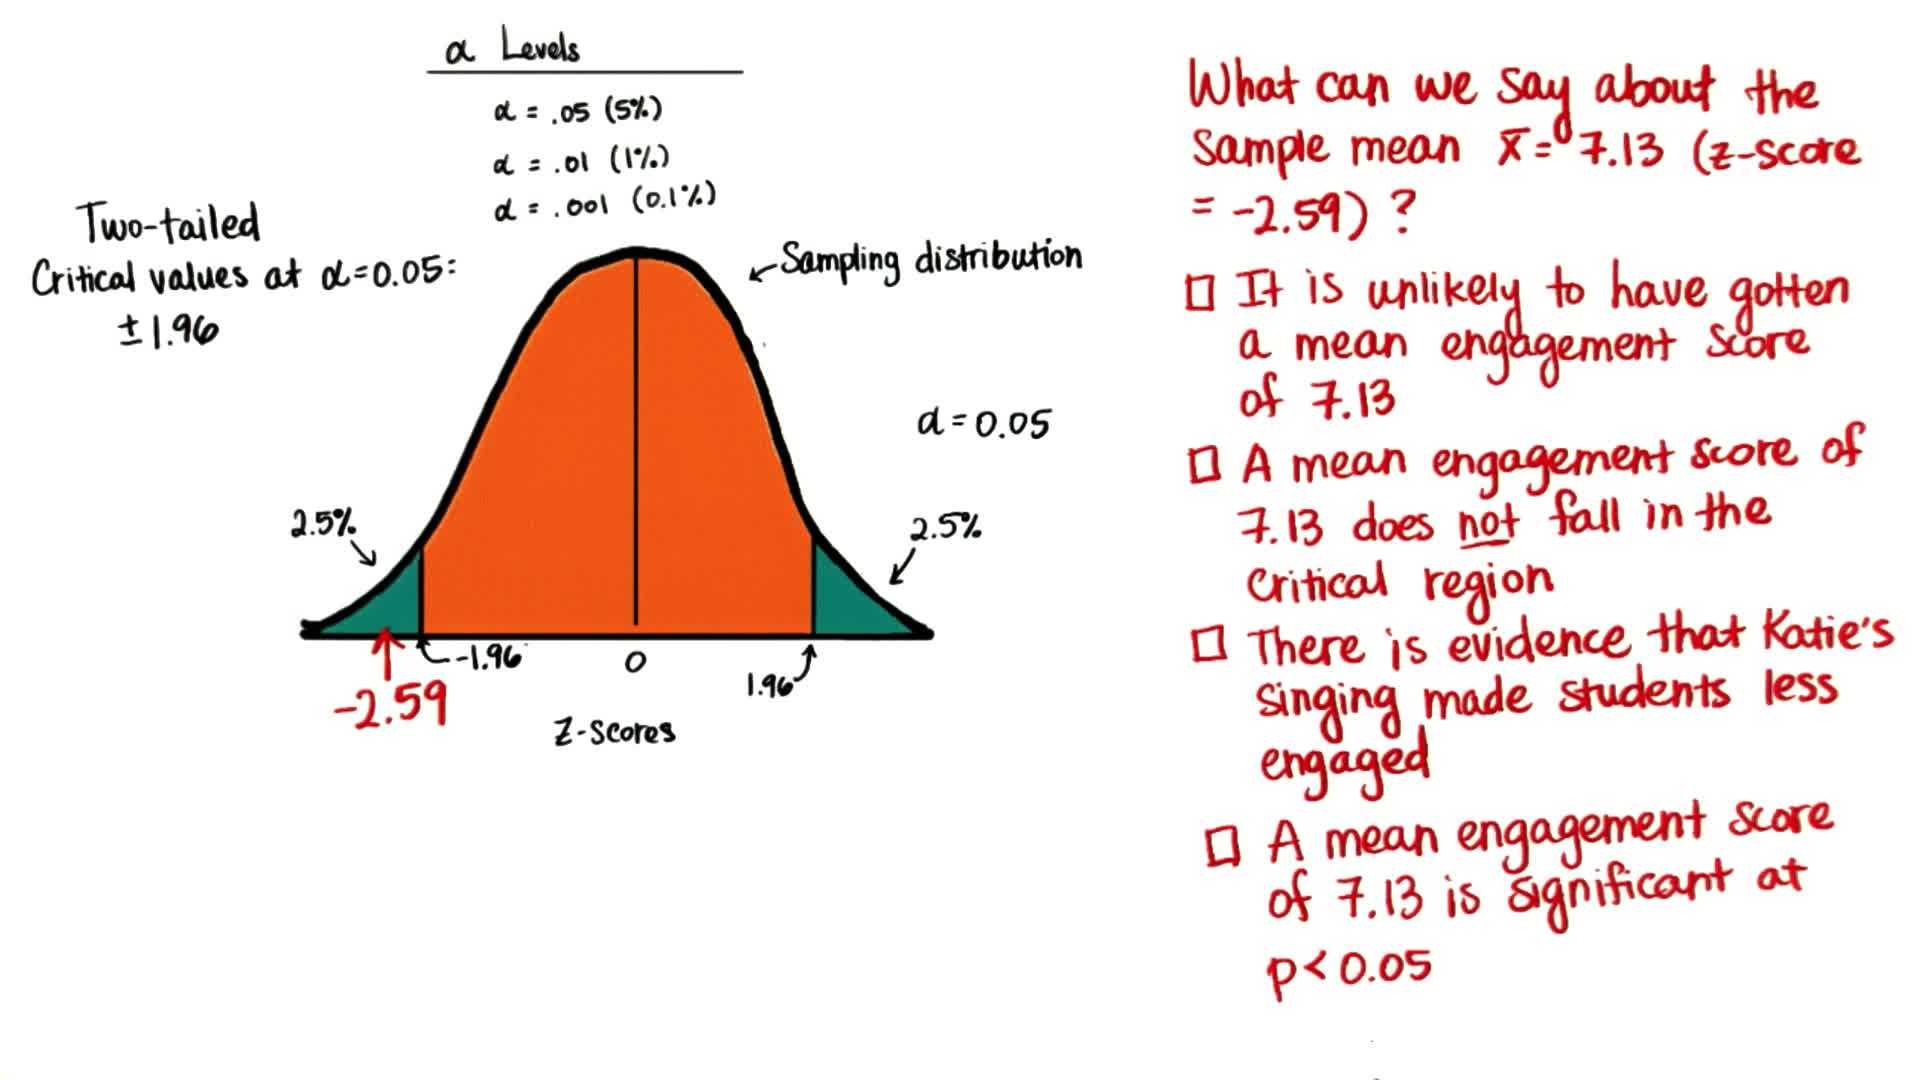 α Levels
α = .05 (5%)
α = .01 (1%)
α = .001 (0.1%)
Two-tailed
Critical values at α=0.05:
± 1.96
Sampling distribution
α = 0.05
2.5%
2.5%
-1.96
0
1.96
-2.59
Z-scores
What can we say about the
sample mean x̄ = 7.13 (z-score
= -2.59) ?
It is unlikely to have gotten
a mean engagement score
of 7.13
A mean engagement score of
7.13 does not fall in the
critical region
There is evidence that Katie's
singing made students less
engaged
A mean engagement score
of 7.13 is significant at
p < 0.05